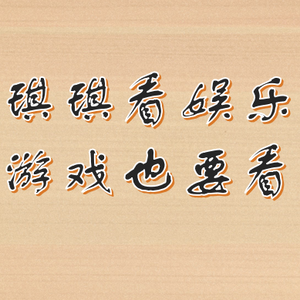 琪琪看娱乐
游戏也要看